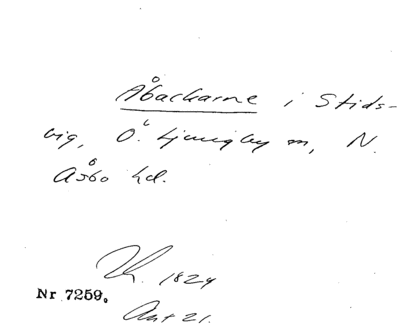 Åbackarne i Stids-
vig, Ö. Ljungby sn, N.
Åsbo hd.
K. 1824
Nr 7259.
Akt 21.